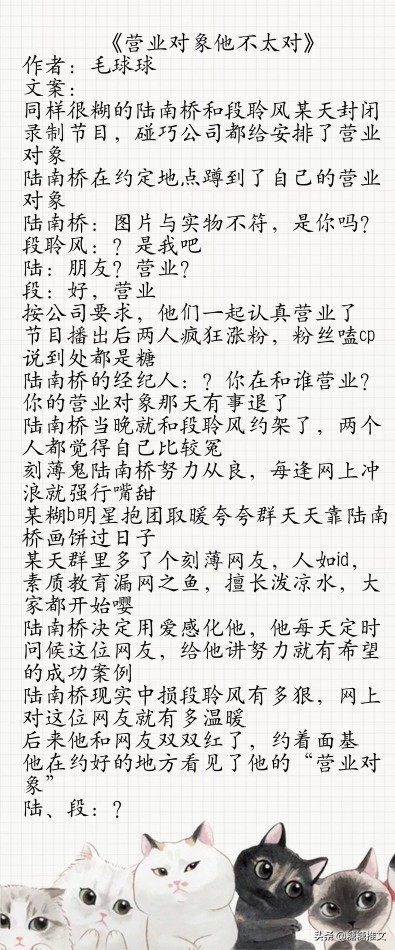 《营业对象他不太对》
作者：毛球球
文案：
同样很糊的陆南桥和段聆风某天封闭
录制节目，碰巧公司都给安排了营业
对象
陆南桥在约定地点蹲到了自己的营业
对象
陆南桥：图片与实物不符，是你吗？
段聆风：？是我吧
陆：朋友？营业？
段：好，营业
按公司要求，他们一起认真营业了
节目播出后两人疯狂涨粉，粉丝嗑cp
说到处都是糖
陆南桥的经纪人：？你在和谁营业？
你的营业对象那天有事退了
陆南桥当晚就和段聆风约架了，两个
人都觉得自己比较冤
刻薄鬼陆南桥努力从良，每逢网上冲
浪就强行嘴甜
某糊b明星抱团取暖夸夸群天天靠陆南
桥画饼过日子
某天群里多了个刻薄网友，人如id，
素质教育漏网之鱼，擅长泼凉水，大
家都开始嘤
陆南桥决定用爱感化他，他每天定时
问候这位网友，给他讲努力就有希望
的成功案例
陆南桥现实中损段聆风有多狠，网上
对这位网友就有多温暖
后来他和网友双双红了，约着面基
他在约好的地方看见了他的“营业对
象”
陆、段：？
头条@糖糖推文